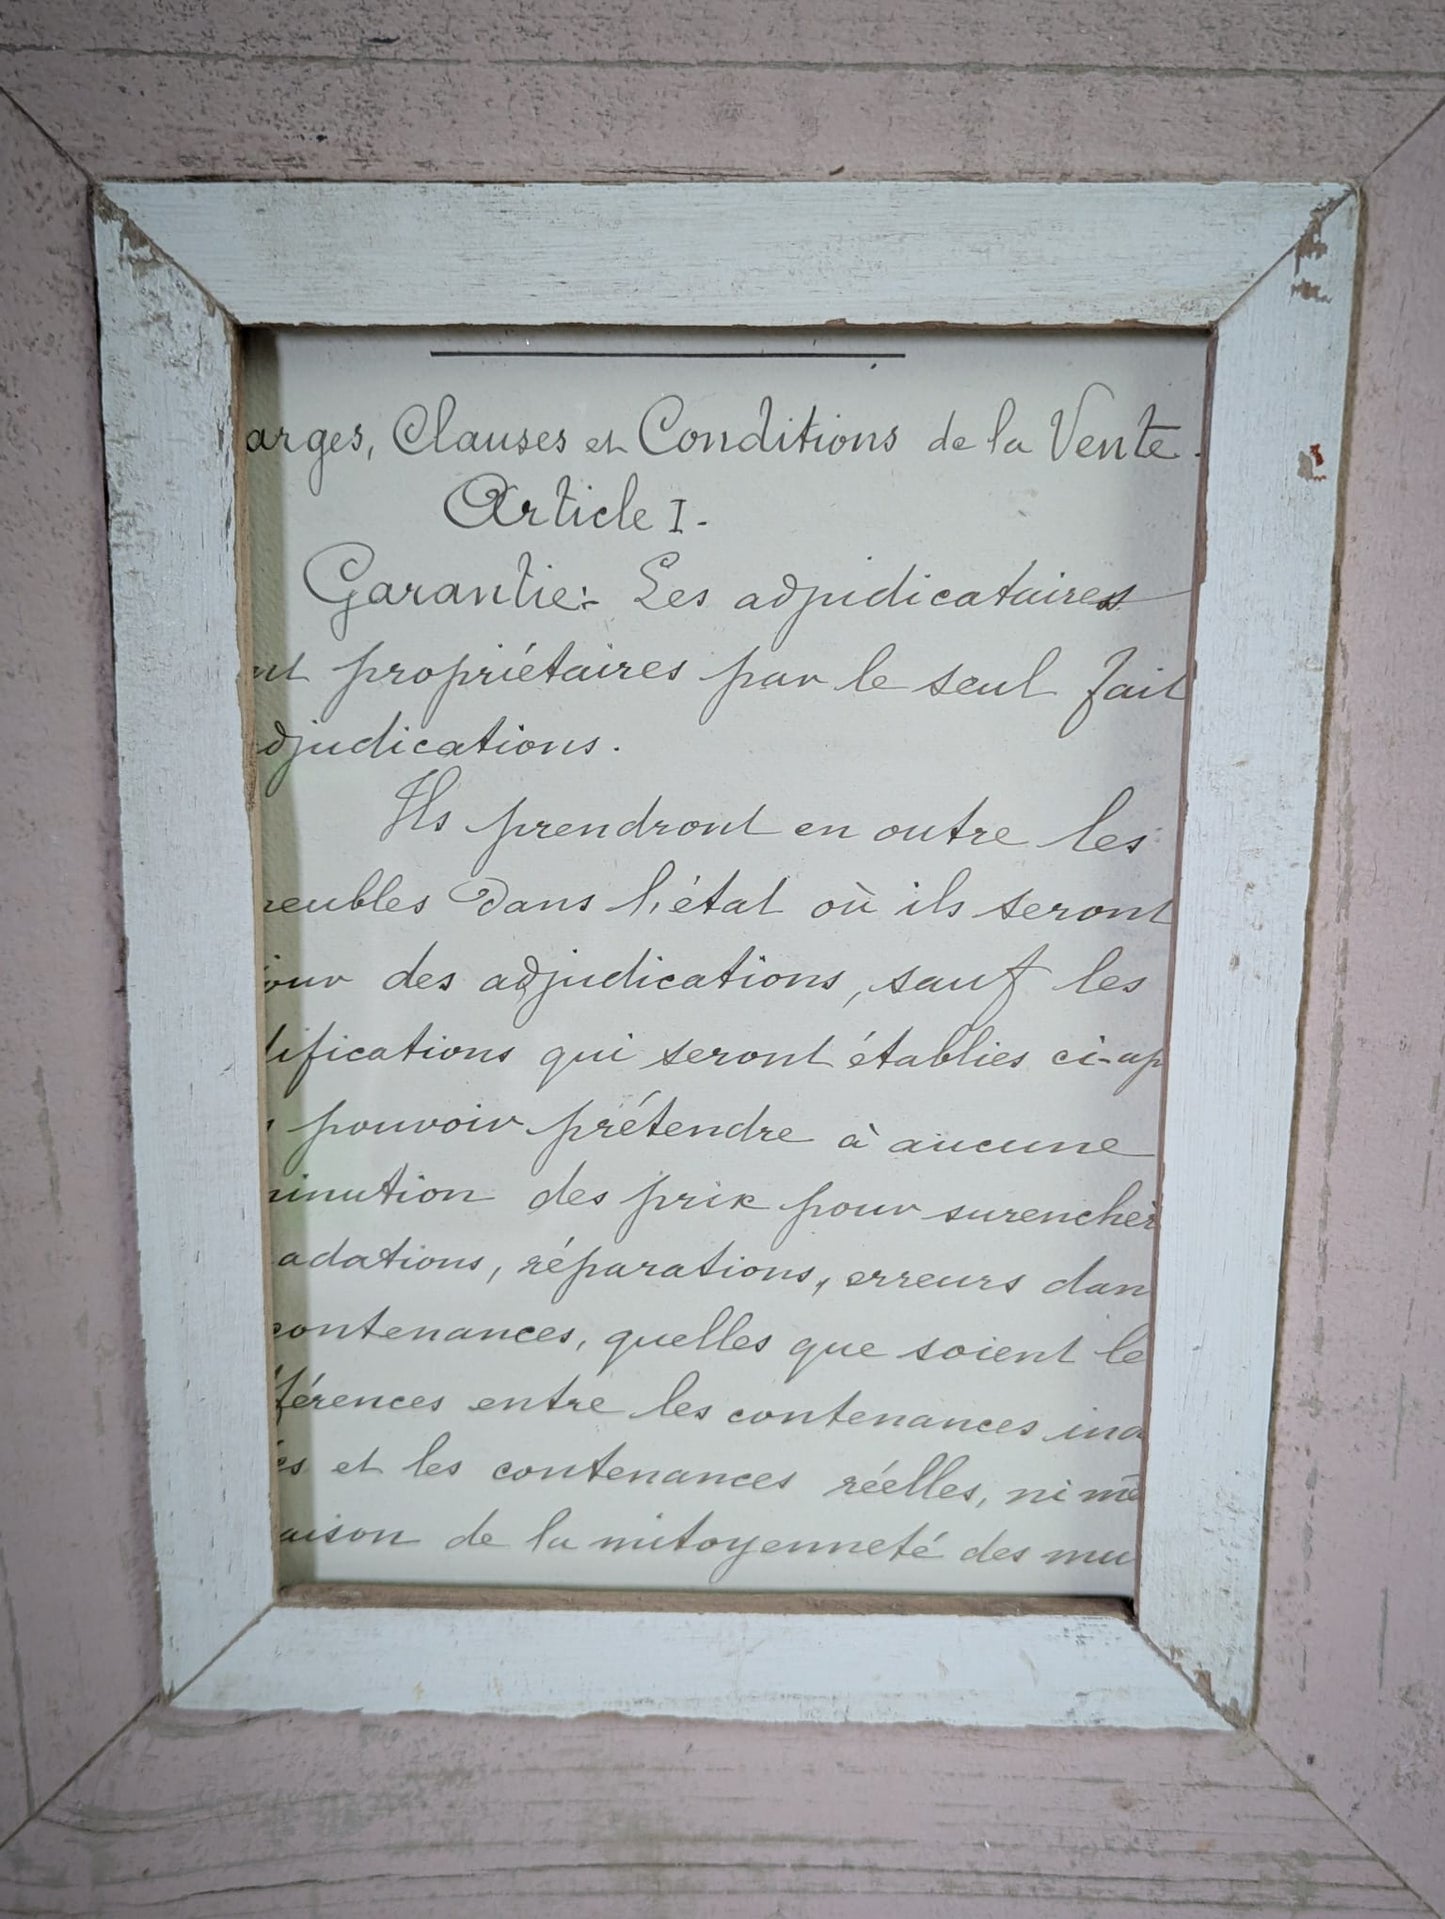 arges, Clauses et Conditions de la Vente.
Article I.-
Garantie:- Les adjudicataires
nt propriétaires par le seul fait
djudications.
Ils prendront en outre les
eubles dans l'état où ils seront
our des adjudications, sauf les
ifications qui seront établies ci-ap
pouvoir prétendre à aucune
inution des prix pour surenchèr
adations, réparations, erreurs dan
contenances, quelles que soient le
férences entre les contenances ind
és et les contenances réelles, ni mê
aison de la mitoyenneté des mu